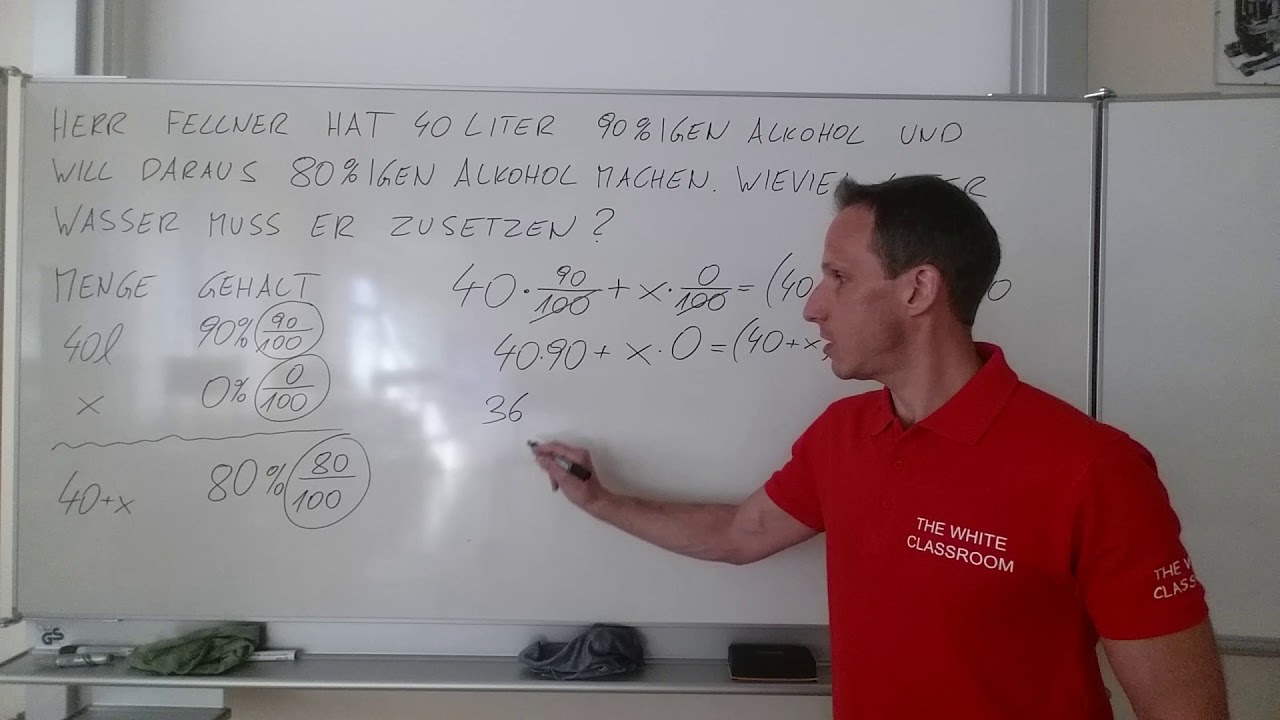 HERR FELLNER HAT 40 LITER 90%IGEN ALKOHOL UND
WILL DARAUS 80%IGEN ALKOHOL MACHEN.
WASSER MUSS ER ZUSETZEN?
MENGE GEHALT
40l 90% 90/100
x 0% 0/100
40+x 80% 80/100
40 · 90/100 + x · 0/100 = (40
40·90 + x · 0 = (40+x
36
THE WHITE
CLASSROOM
GS